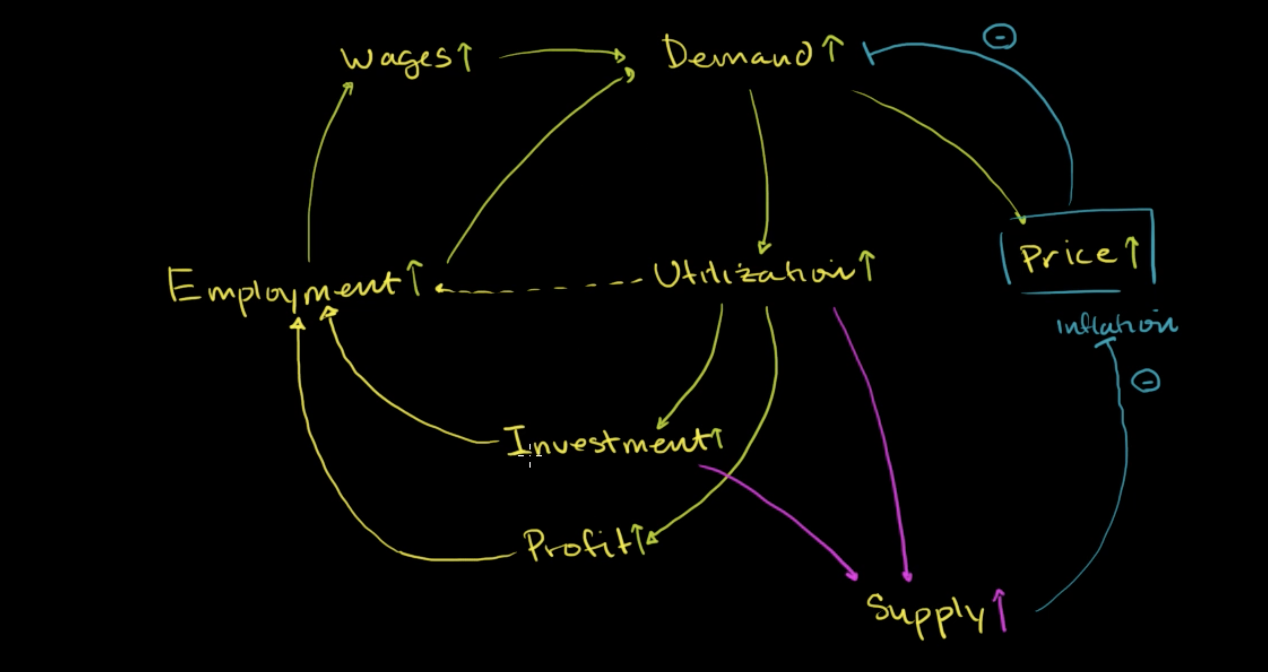 Wages↑
Demand↑
Employment↑
Utilization↑
Price↑
Inflation
Investment↑
Profit↑
Supply↑